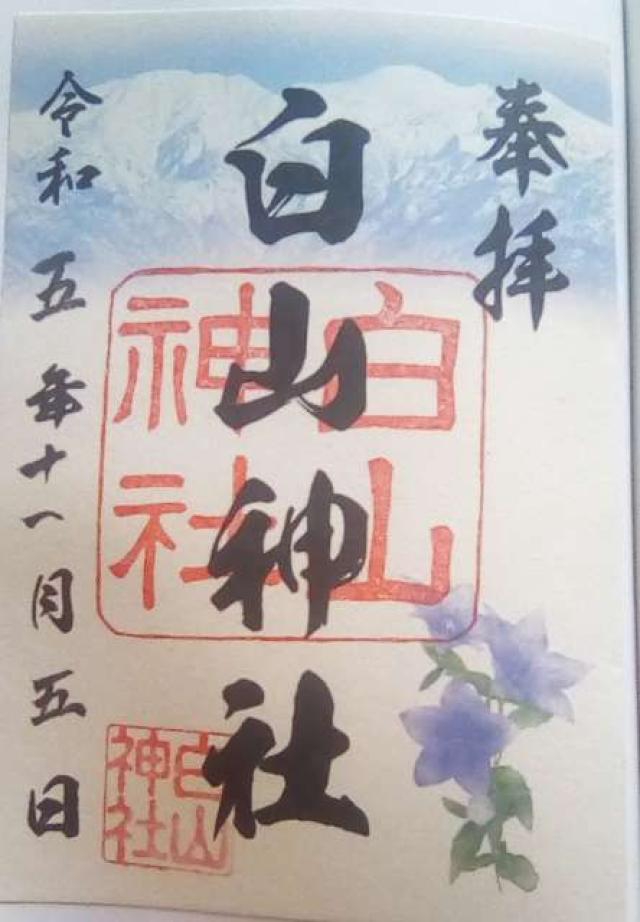 奉拝
白山神社
白山神社
白山神社
令和五年十一月五日